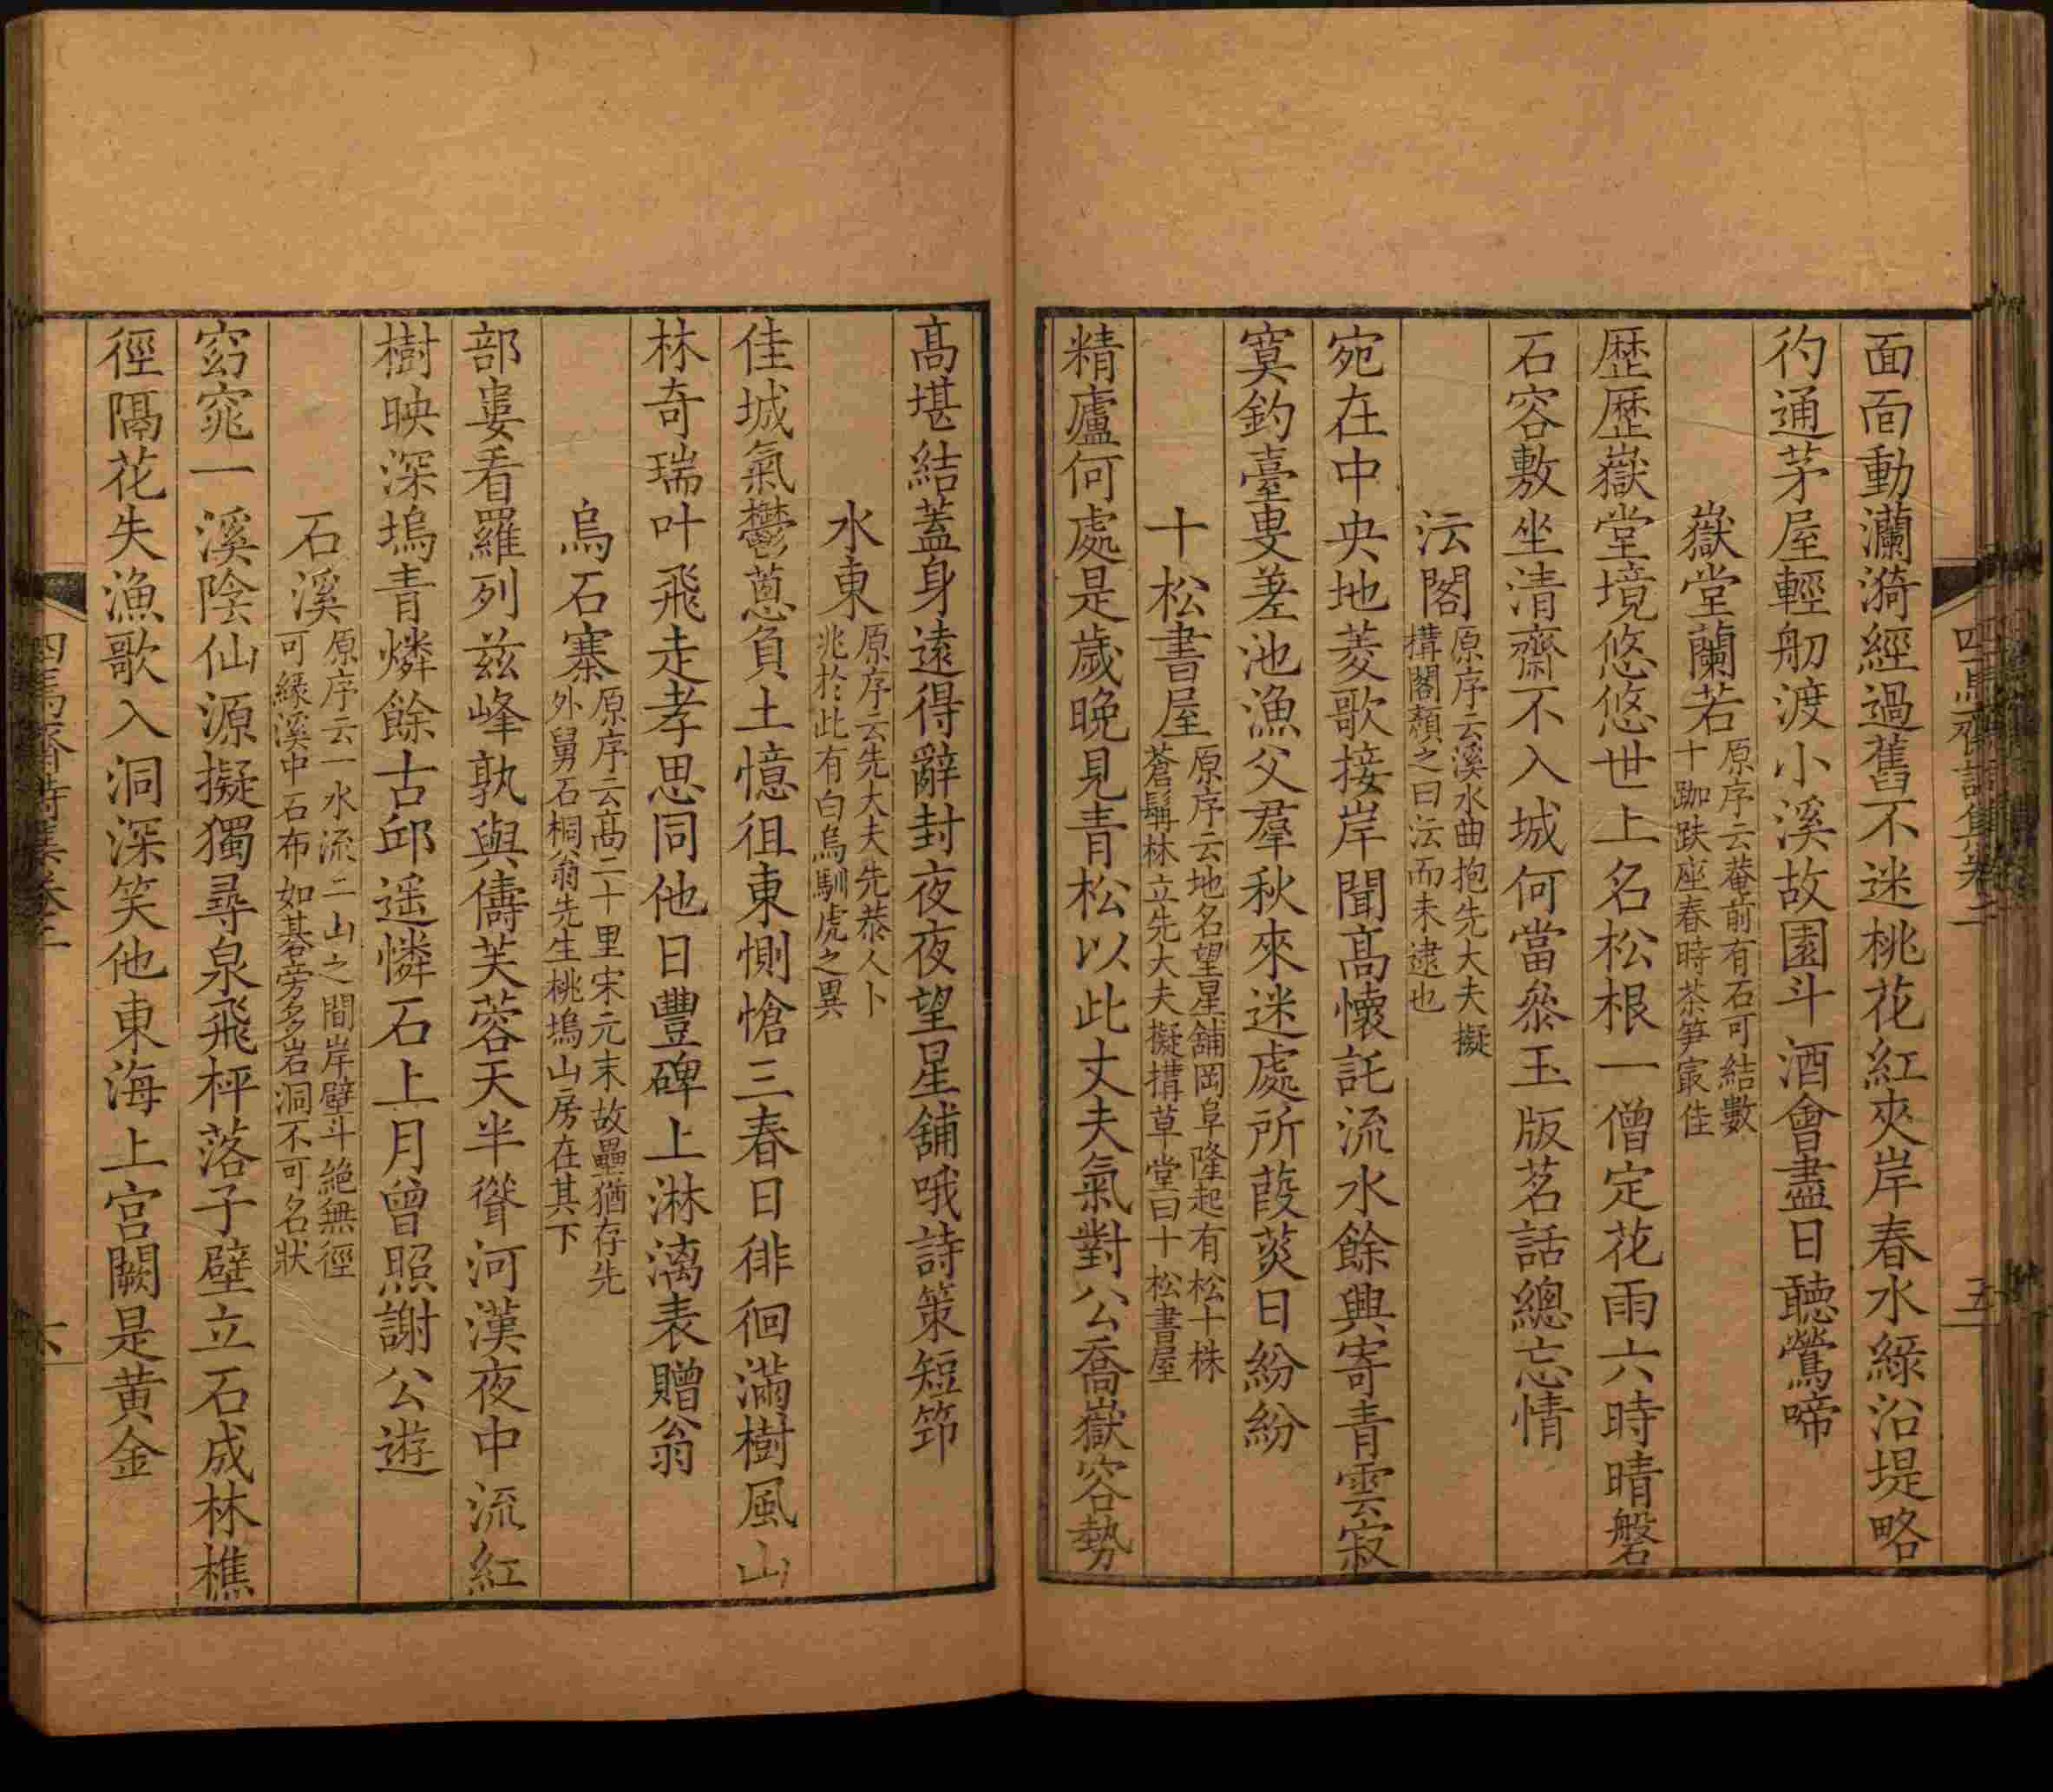 面面動瀾漪經過舊不迷桃花紅夾岸春水綠沿堤略
彴通茅屋輕舠渡小溪故園斗酒會盡日聽鶯啼
嶽堂蘭若
原序云菴前有石可結數
十跏趺座春時茶筍最佳
歴歴嶽堂境悠悠世上名松根一僧定花雨六時晴磐
石容敷坐清齋不入城何當叅玉版茗話總忘情
沄閣
原序云溪水曲抱先大夫擬
搆閣顏之曰沄而未逮也
宛在中央地菱歌接岸聞高懷託流水餘興寄青雲寂
寞釣臺叟差池漁父羣秋來迷處所葭菼日紛紛
十松書屋
原序云地名望星舖岡阜隆起有松十株
蒼髯林立先大夫擬搆草堂曰十松書屋
精廬何處是歲晚見青松以此丈夫氣對公喬嶽容勢
四焉齋詩集卷二
五
高堪結蓋身遠得辭封夜夜望星舖哦詩策短筇
水東
原序云先大夫先恭人卜
兆於此有白烏馴虎之異
佳城氣鬱蔥負土憶徂東惻愴三春日徘徊滿樹風山
林奇瑞叶飛走孝思同他日豐碑上淋漓表贈翁
烏石寨
原序云高二十里宋元末故壘猶存先
外舅石桐翁先生桃塢山房在其下
部婁看羅列茲峰孰與儔芙蓉天半聳河漢夜中流紅
樹映深塢青燐餘古邱遥憐石上月曾照謝公遊
石溪
原序云一水流二山之間岸壁斗絶無徑
可緣溪中石布如碁旁多岩洞不可名狀
窈窕一溪陰仙源擬獨尋泉飛枰落子壁立石成林樵
徑隔花失漁歌入洞深笑他東海上宫闕是黄金
四焉齋詩集卷二
六